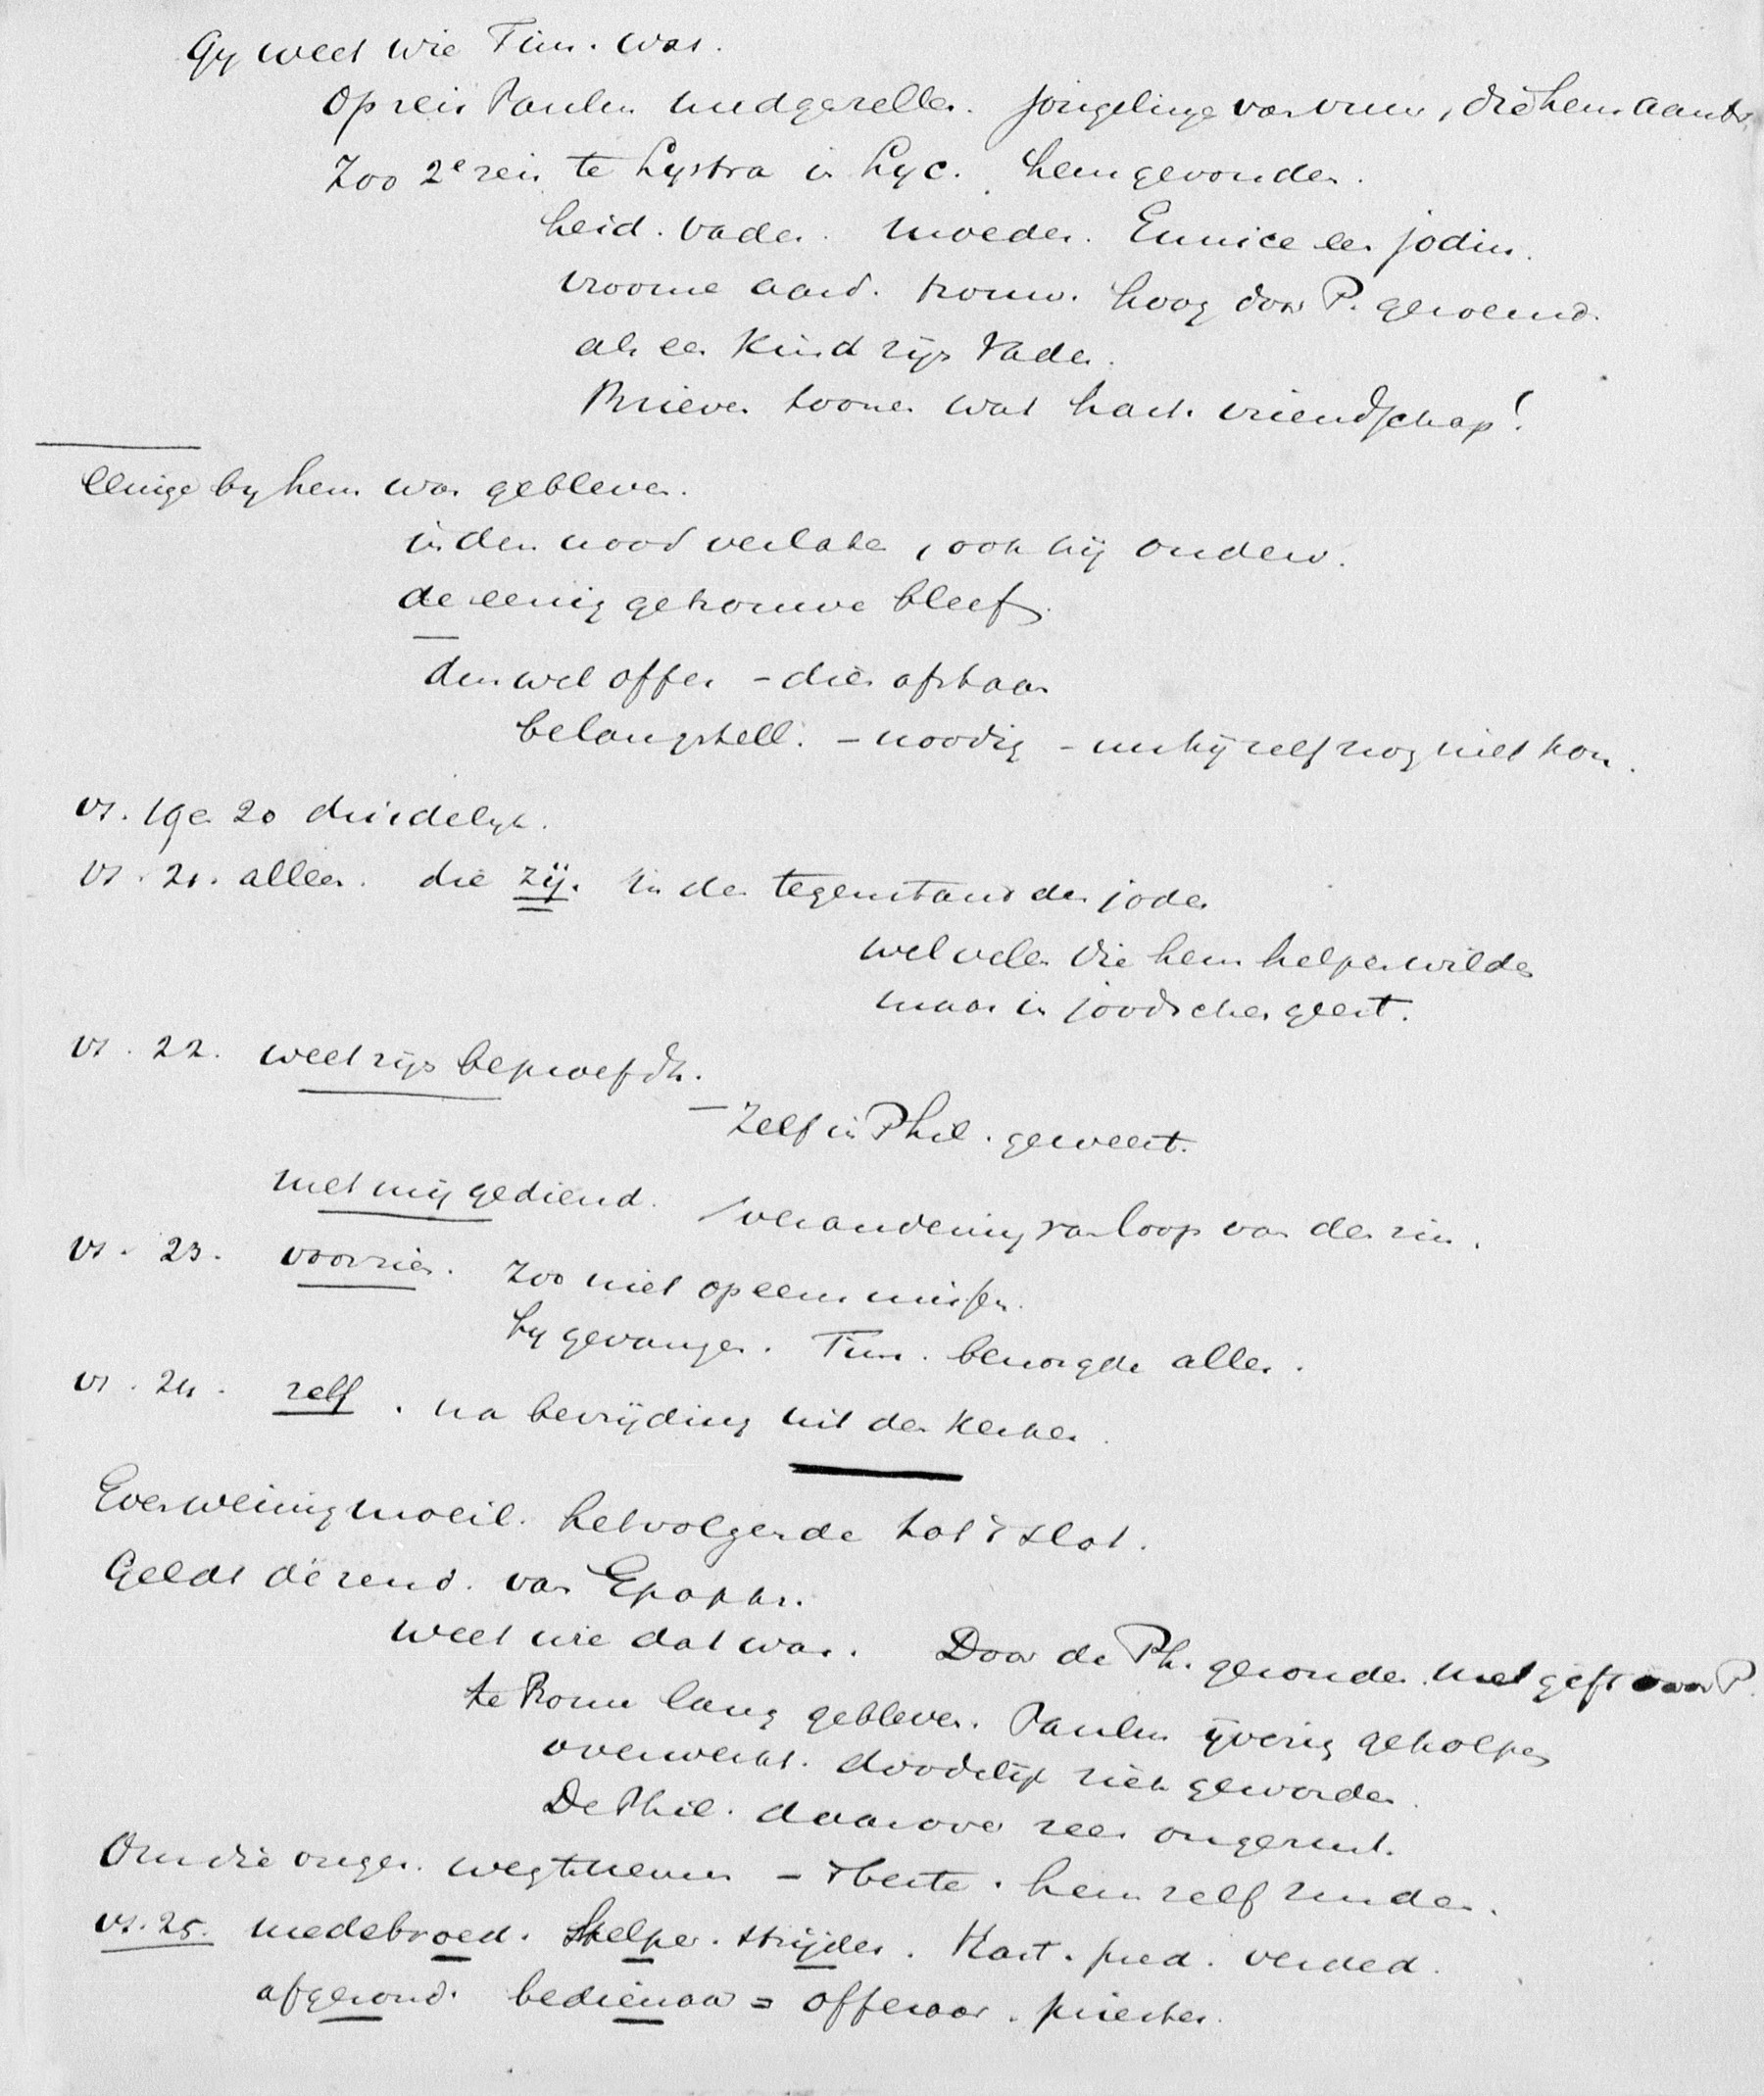 Gy weet wie Tim. was.
Op reis Paulus medgezellen. jongelinge van vrien, die hem aantr.
Zoo 2e reis te Lystra in Lyc. hem gevonden.
heid. vader. moeder. Eunice een jodin.
vroome aard. trouw. hoog door P. geroemd.
als een kind zijn vader.
Brieven toonen wat hart. vriendschap!
eenige by hem was gebleven.
in den nood verlaten, ook hij onderv.
de eenig getrouwe bleef.
dus wel offer - dien afstaan
belangstell. - noodig - nu hij zelf nog niet kon.
vs. 19 en 20 duidelyk.
vs. 21. allen. die zij. In den tegenstand der joden
wel velen die hem helpen wilden
maar in joodschen geest.
vs. 22. weet zijn beproefdh.
- Zelf in Phil. geweest.
met mij gediend. / verandering van loop van den zin.
vs. 23. voorzien. Zoo niet opeens missen.
hy gevangen. Tim. bezorgde alles.
vs. 24. zelf. na bevrijding uit den kerker.
Evenweinig moeil. het volgende tot 't slot.
Geldt de zend. van Epaphr.
weet wie dat was. Door de Ph. gezonden met gift voor P.
te Rome lang gebleven. Paulus ijverig geholpen
overwerkt. doodelijk ziek geworden.
De Phil. daarover zeer ongerust.
Om die onger. wegtenemen - 't beste. hem zelf zenden.
vs. 25. medebroed. helper. strijder. Hart. pred. verded.
afgezond. bedienaar = offeraar. priester.